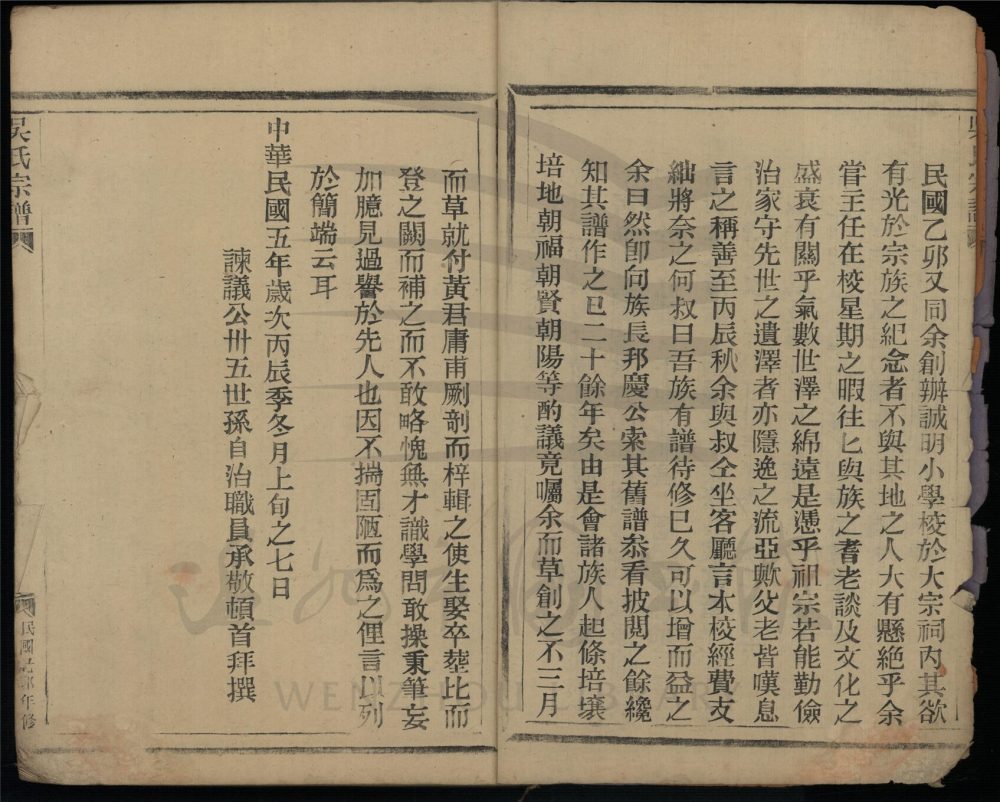 民國乙卯又同余創辦誠明小學校於大宗祠內其欲
有光於宗族之紀念者不與其地之人大有懸絕乎余
嘗主任在校星期之暇往匕與族之耆老談及文化之
盛衰有關乎氣數世澤之綿遠是憑乎祖宗若能勤儉
治家守先世之遺澤者亦隱逸之流亞歟父老皆嘆息
言之稱善至丙辰秋余與叔仝坐客廳言本校經費支
絀將奈之何叔曰吾族有譜待修已久可以增而益之
余曰然卽向族長邦慶公索其舊譜恭看披閱之餘纔
知其譜作之已二十餘年矣由是會諸族人起條培壤
培地朝福朝賢朝陽等酌議竟囑余而草創之不三月
而草就付黃君庸甫劂剞而梓輯之使生娶卒塟比而
登之闕而補之而不敢略愧無才識學問敢操秉筆妄
加臆見過譽於先人也因不揣固陋而爲之俚言以列
於簡端云耳
中華民國五年歲次丙辰季冬月上旬之七日
諫議公卅五世孫自治職員承敬頓首拜撰
吳氏宗譜
民國
年修
WENZHOU LIBRARY